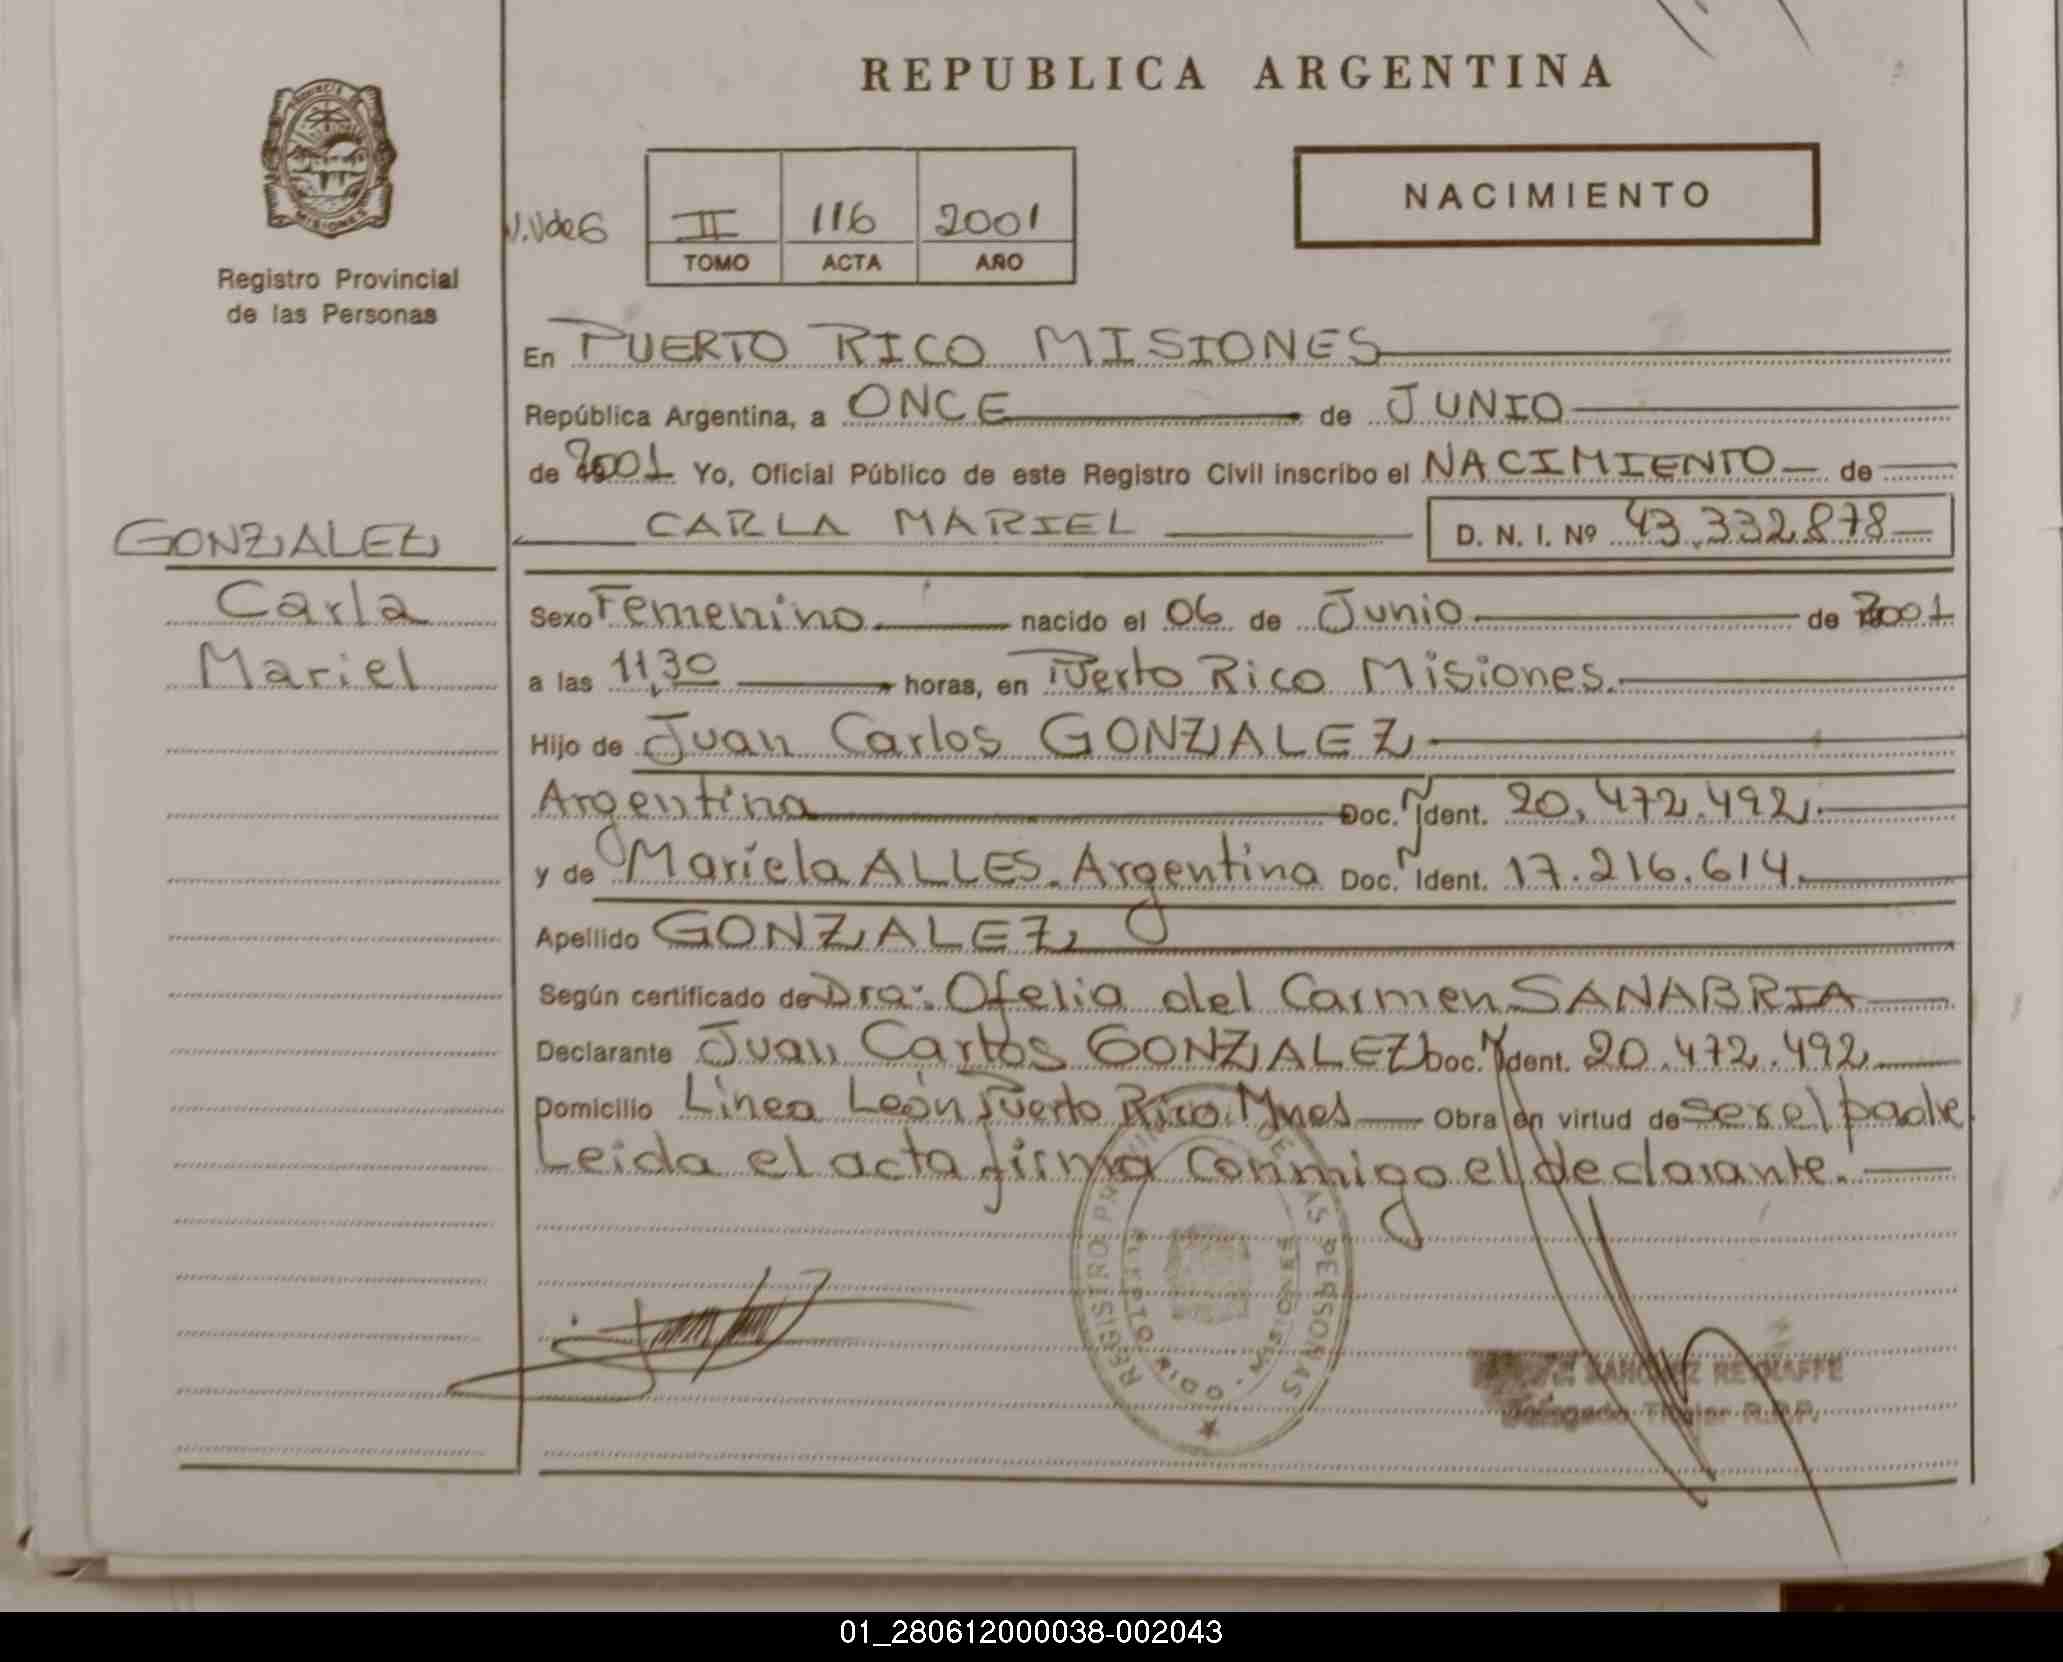 REPUBLICA ARGENTINA
NACIMIENTO
II 116 2001
TOMO ACTA AÑO
PROVINCIA DE MISIONES
Registro Provincial
de las Personas
En PUERTO RICO MISIONES
República Argentina, a ONCE de JUNIO
de 2001 Yo, Oficial Público de este Registro Civil inscribo el NACIMIENTO de
CARLA MARIEL D. N. I. Nº 43.332.878
GONZALEZ
Carla
Mariel
Sexo Femenino nacido el 06 de Junio de 2001
a las 11,30 horas, en Puerto Rico Misiones.
Hijo de Juan Carlos GONZALEZ
Argentina Doc. Ñ Ident. 20.472.492.
y de Mariela ALLES. Argentina Doc. Ñ Ident. 17.216.614.
Apellido GONZALEZ
Según certificado de Dra: Ofelia del Carmen SANABRIA
Declarante Juan Carlos GONZALEZ Doc. Ñ Ident. 20.472.492
Domicilio Línea León Puerto Rico Mnes Obra en virtud de ser el padre
Leida el acta firma conmigo el declarante.
REGISTRO PROVINCIAL DE LAS PERSONAS
PUERTO RICO - MISIONES
SANCHEZ
Delegado Titular R.P.P.
01_280612000038-002043